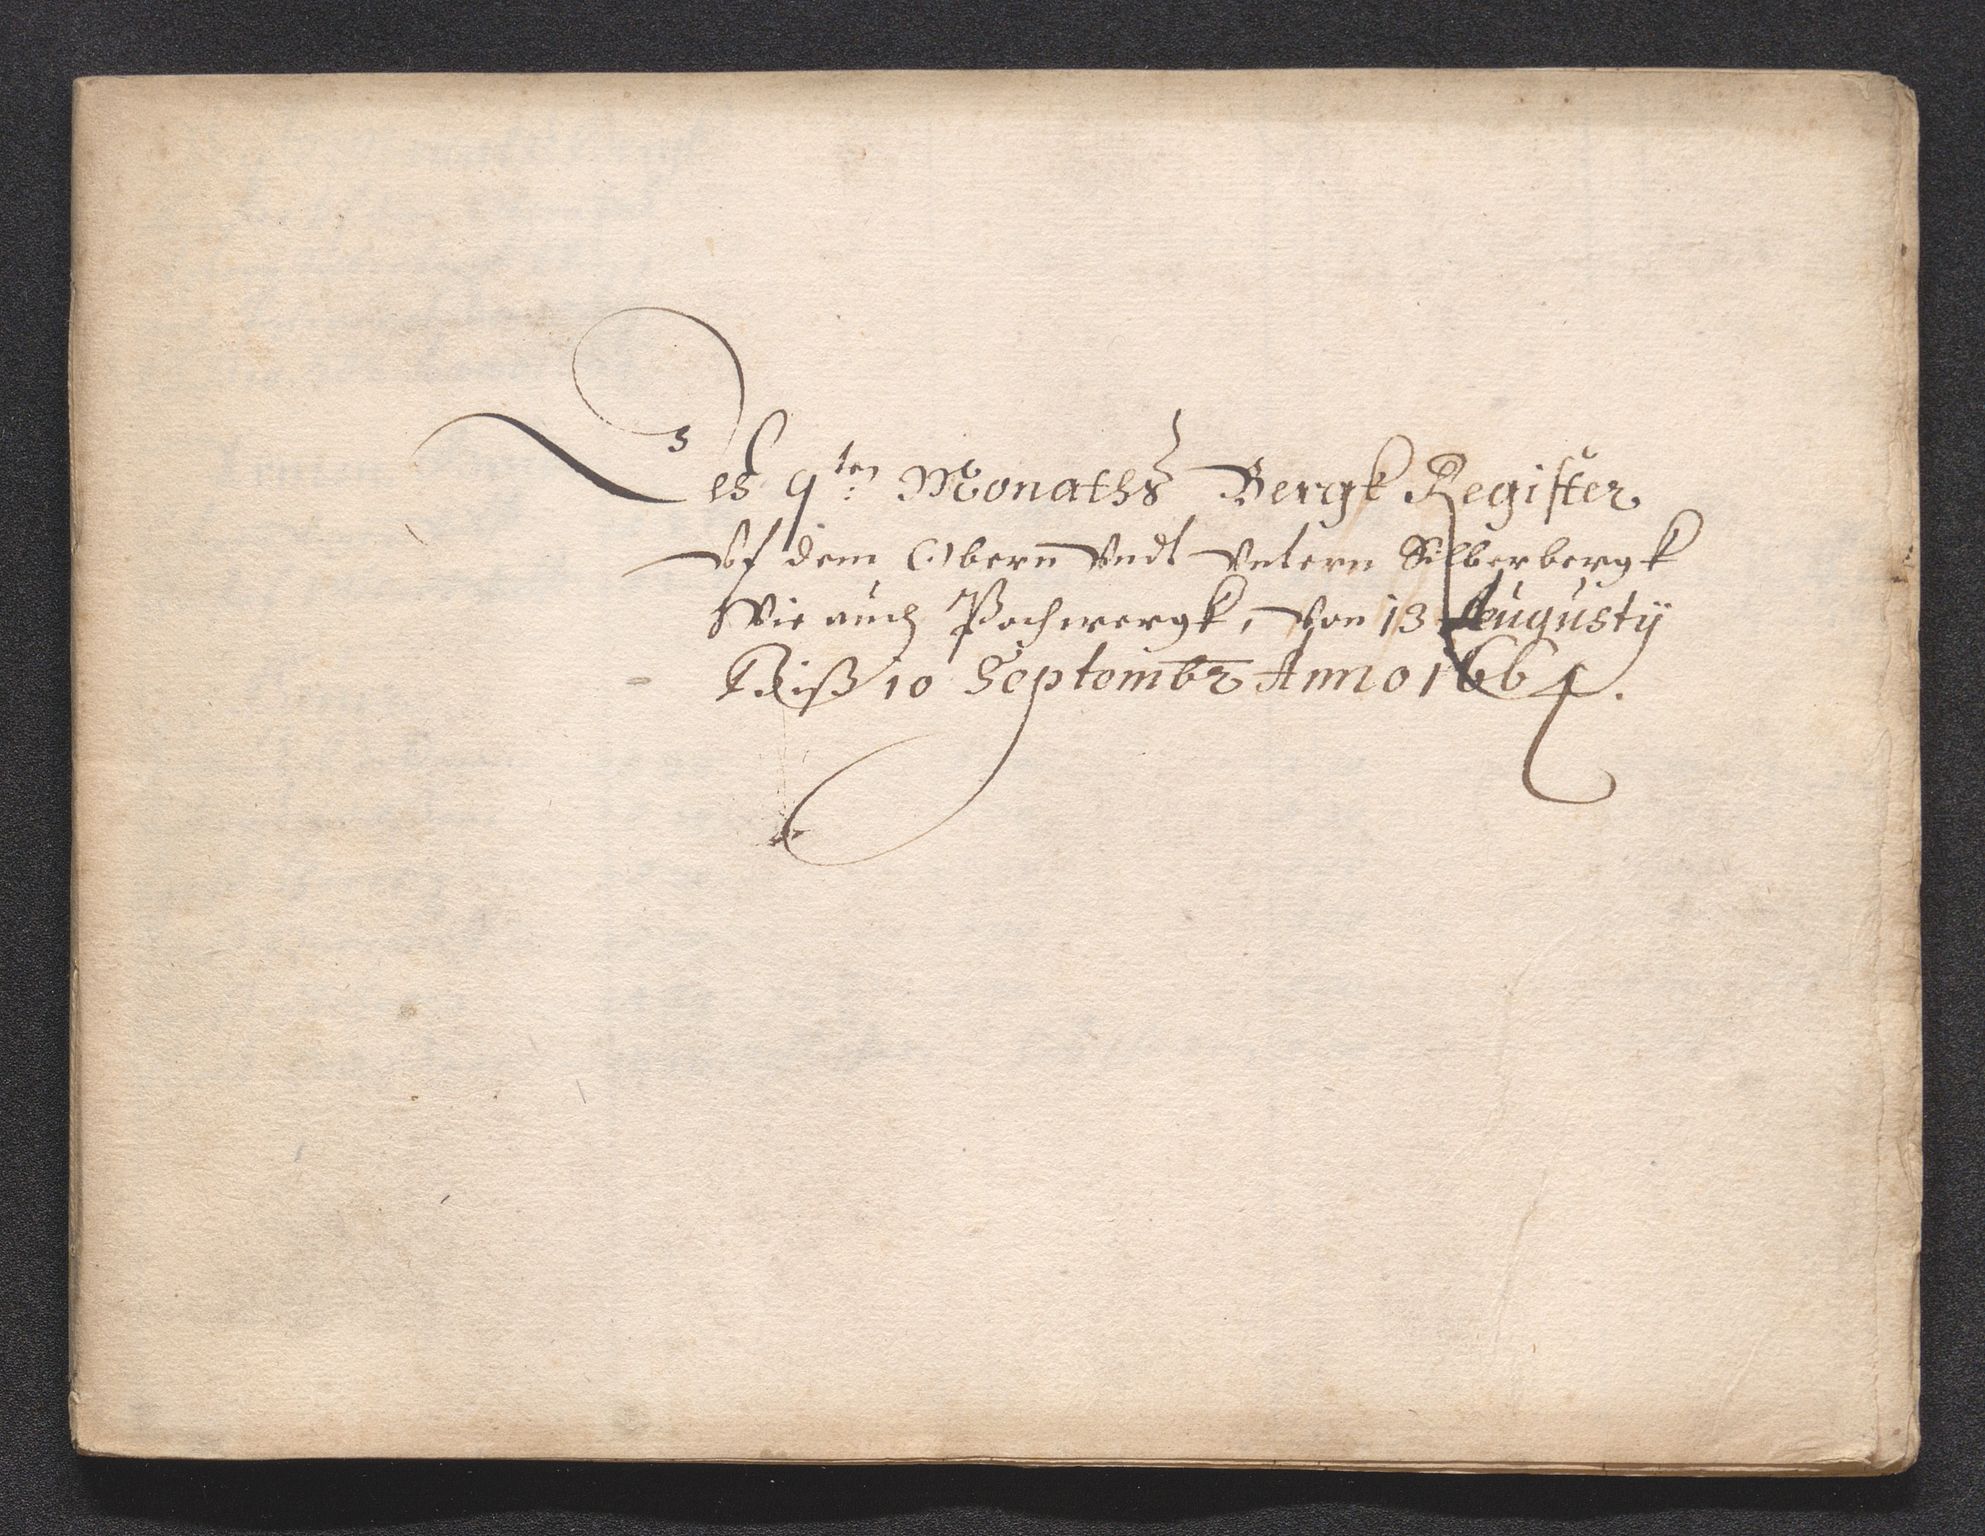 Des 9ten Monaths Bergk Register
Vf dem Obern Vndt Vntern Silberbergk
Wie auch Pochwergk, Von 13 Augusty
Biß 10 Septembr Anno 1664.